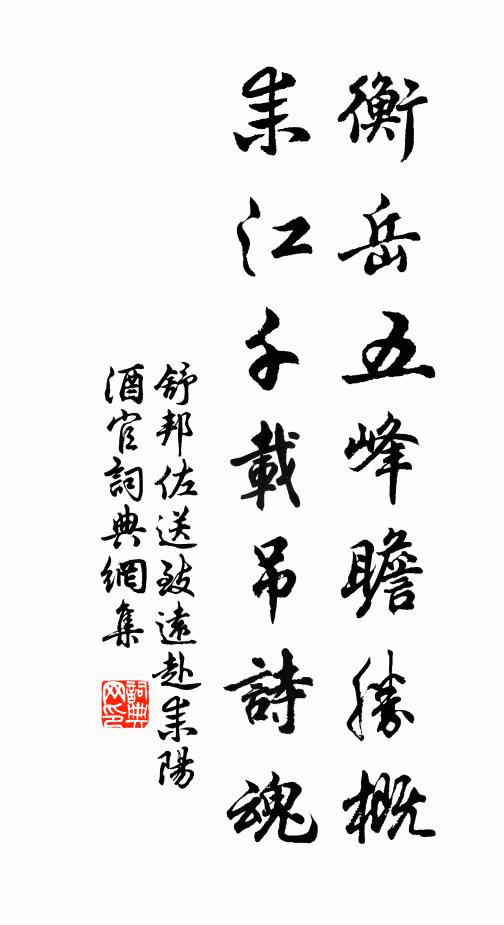 衡岳五峰瞻勝概
耒江千載吊詩魂
舒邦佐送致遠赴耒陽
酒官詞典網集
詞典
网印